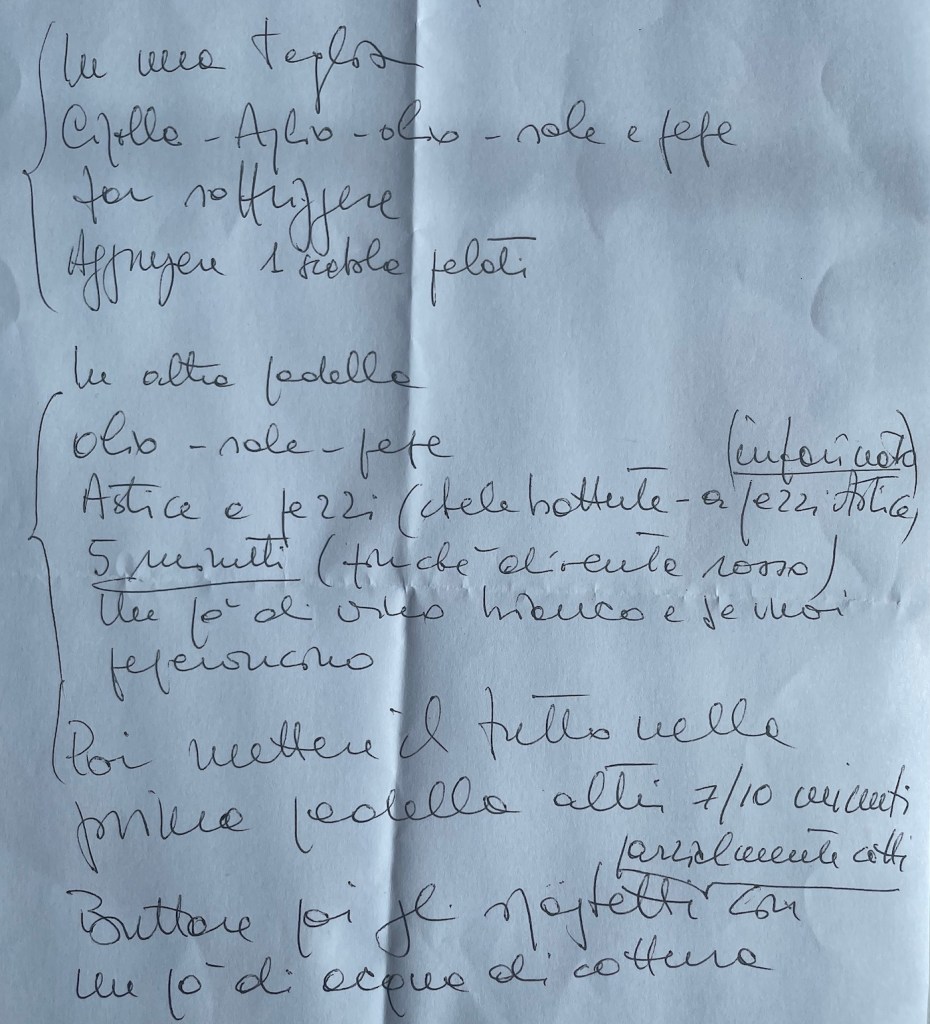 In una teglia
Cipolla - Aglio - olio - sale e pepe
far soffriggere
Aggiungere 1 scatola pelati
In altra padella
olio - sale - pepe
(infarinato)
Astice a pezzi ( - a pezzi Astice)
5 minuti (finchè diventa rosso)
Un pò di vino bianco e se vuoi
peperoncino
Poi mettere il tutto nella
prima padella altri 7/10 minuti
parzialmente cotti
Buttare poi gli spaghetti con
un pò di acqua di cottura